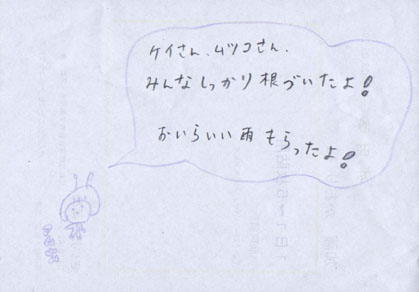 ケイさん、ムツコさん、
みんなしっかり根づいたよ!
おいらいい雨もらったよ!